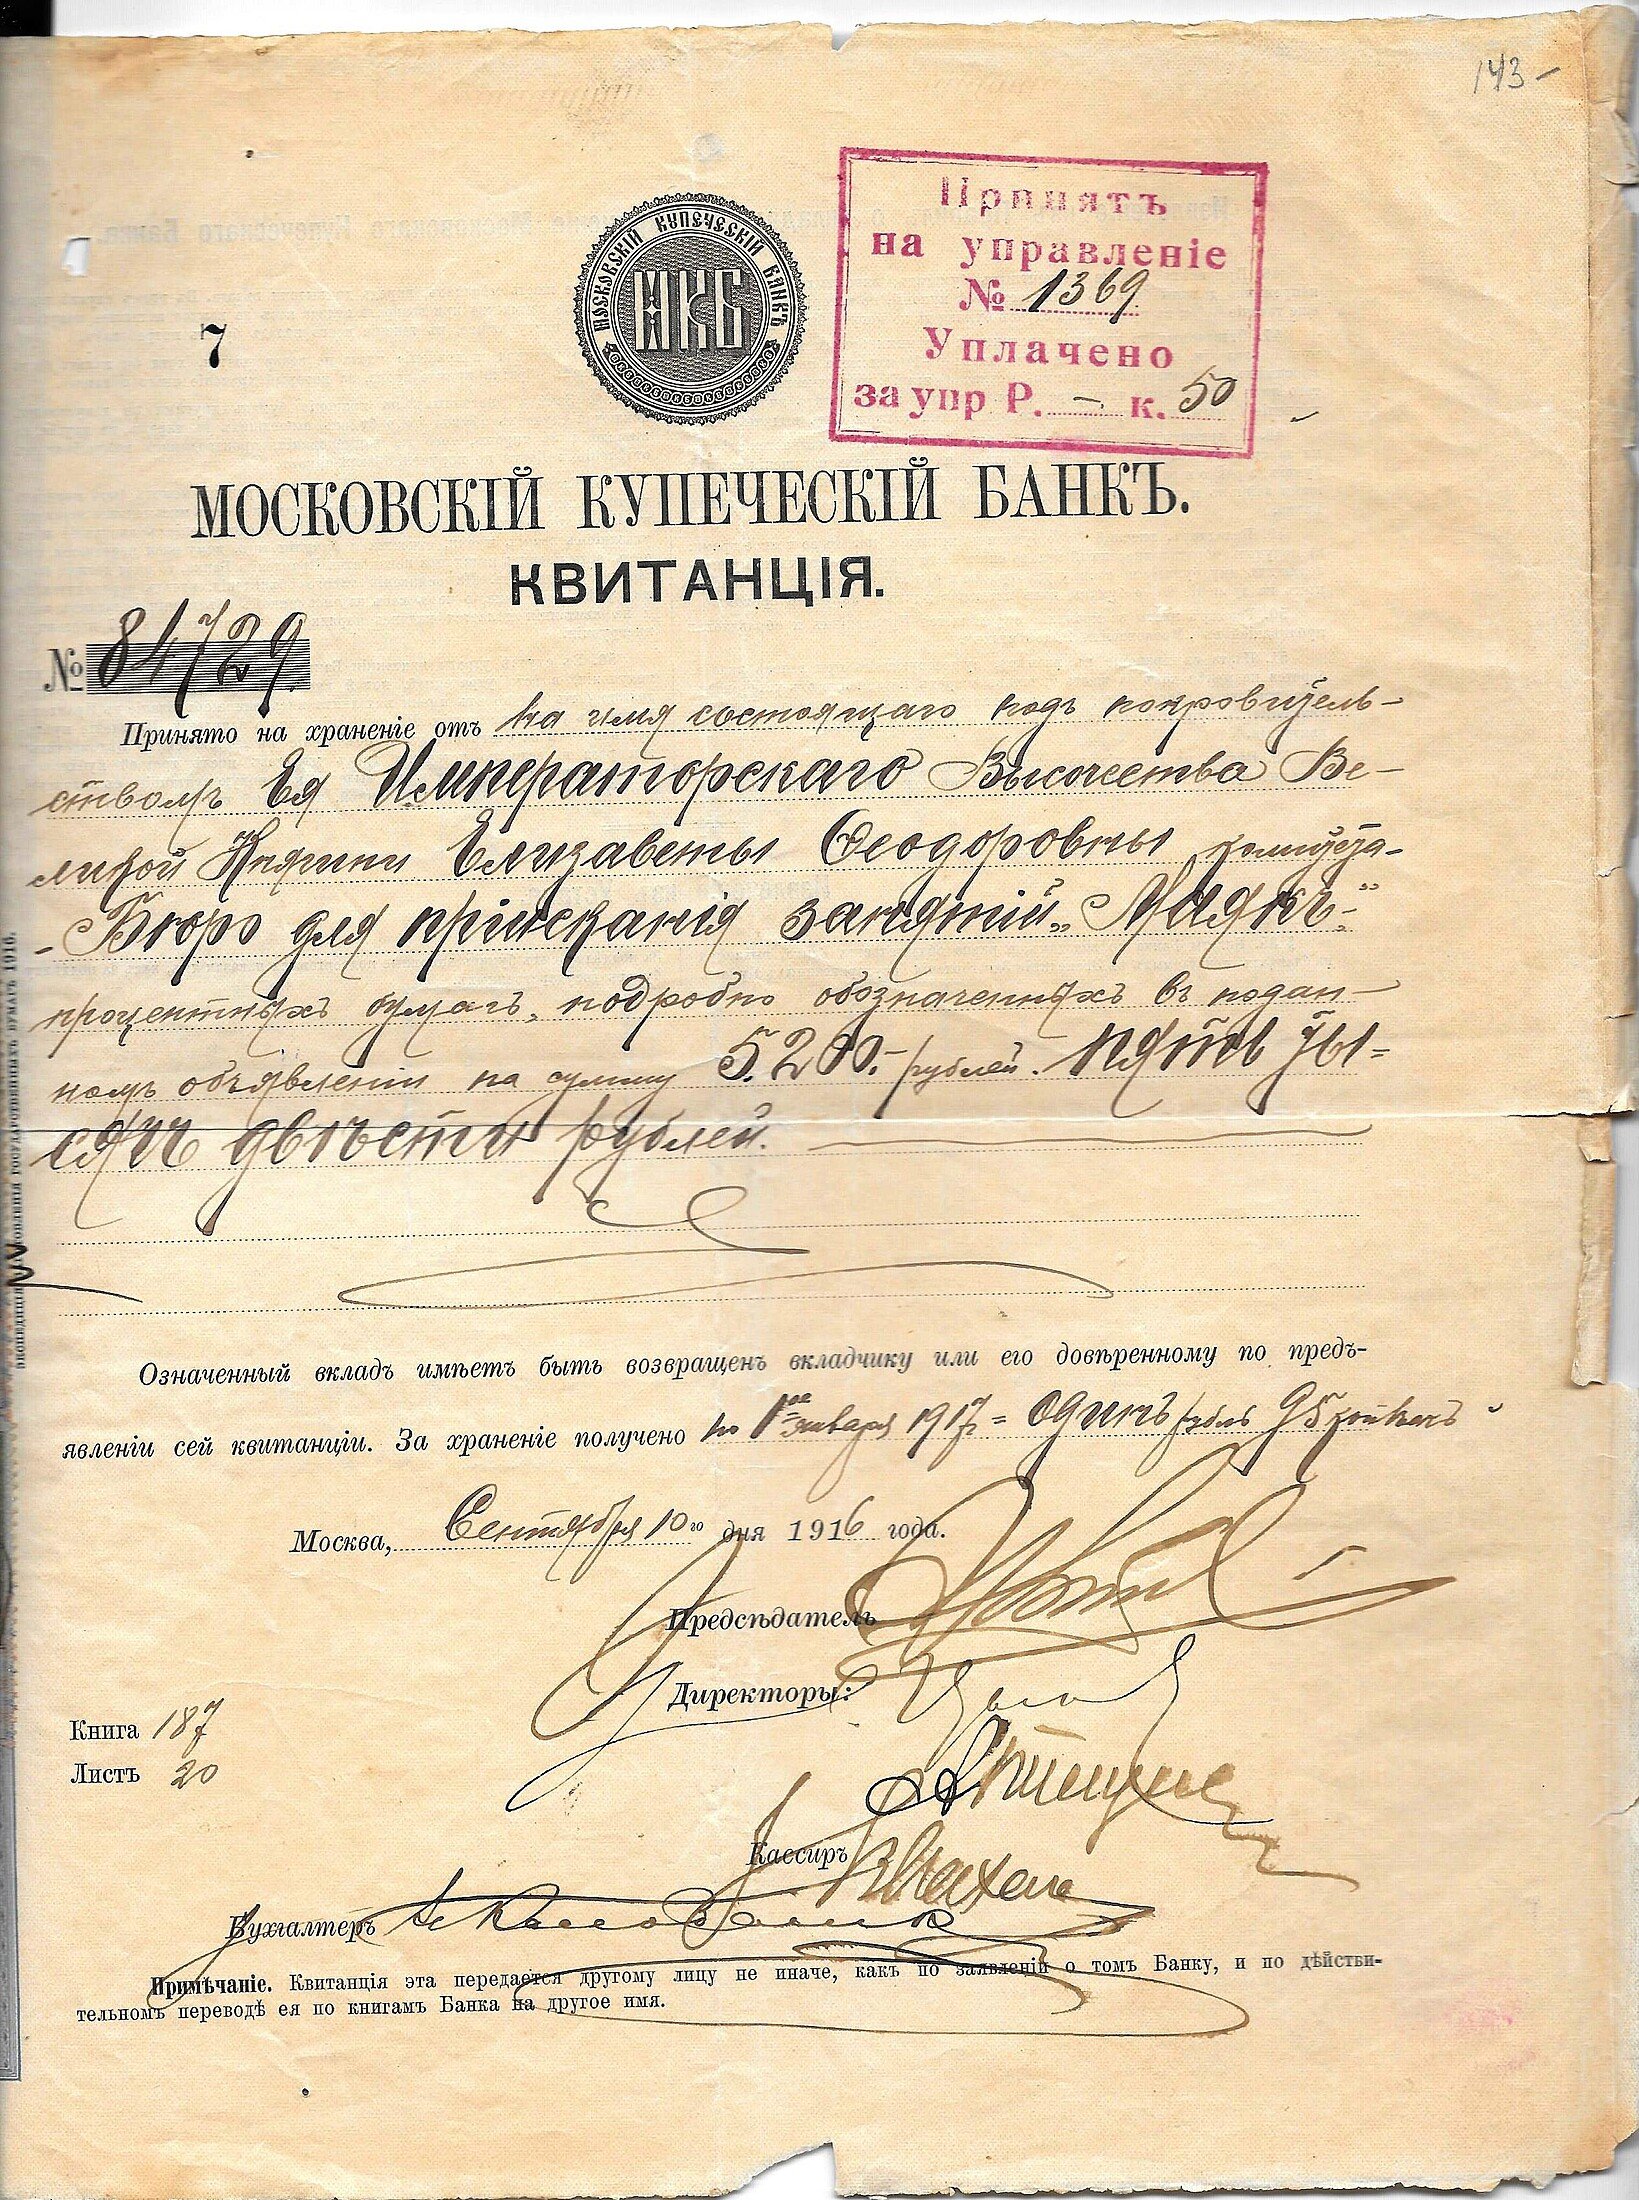 143 –
МОСКОВСКІЙ КУПЕЧЕСКІЙ БАНКЪ
МКБ
Принятъ
на управленіе
№ 1369
Уплачено
за упр Р. – к. 50
7
МОСКОВСКІЙ КУПЕЧЕСКІЙ БАНКЪ.
КВИТАНЦІЯ.
№ 84729
Принято на храненіе отъ на имя состоящаго подъ покровитель-
ствомъ Ея Императорскаго Высочества Ве-
ликой Княгини Елизаветы Ѳеодоровны
- Бюро для пріисканія занятій „Маякъ"-
процентныхъ бумагъ, подробно обозначенныхъ въ подан-
номъ объявленіи на сумму 5.200.- рублей. Пять ты-
сячъ двѣсти рублей.
Означенный вкладъ имѣетъ быть возвращенъ вкладчику или его довѣренному по предъ-
явленіи сей квитанціи. За храненіе получено по 1ое января 1917 = одинъ рубль 95 копѣекъ
Москва, Сентября 10го дня 1916 года.
Предсѣдатель
Директоры:
Книга 187
Листъ 20
Кассиръ
Бухгалтеръ
Примѣчаніе. Квитанція эта передается другому лицу не иначе, какъ по заявленіи о томъ Банку, и по дѣйстви-
тельномъ переводѣ ея по книгамъ Банка на другое имя.